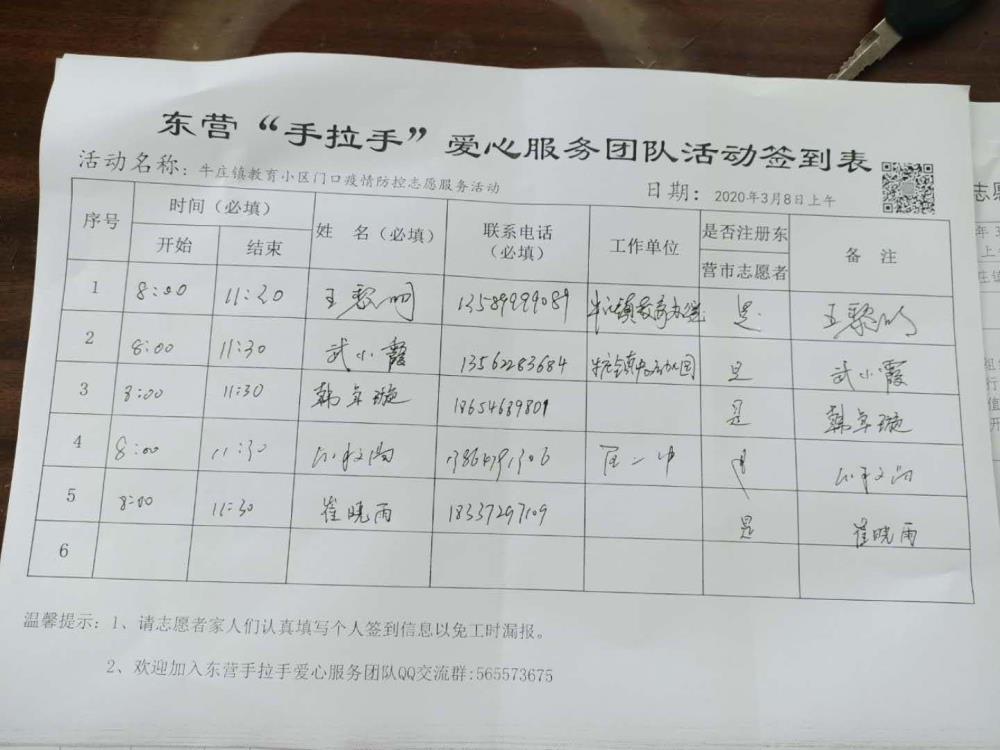 东营“手拉手”爱心服务团队活动签到表
活动名称：牛庄镇教育小区门口疫情防控志愿服务活动 日期：2020年3月8日上午
序号 时间（必填） 姓 名（必填） 联系电话（必填） 工作单位 是否注册东营市志愿者 备 注
开始 结束
1 8:00 11:30 王黎明 13589999089 牛庄镇教育办 是 王黎明
2 8:00 11:30 武小霞 13562283684 牛庄镇 是 武小霞
3 8:00 11:30 韩卓璇 18654689801 是 韩卓璇
4 8:00 11:30 二中 是
5 8:00 11:30 崔晓雨 18337297109 是 崔晓雨
6
温馨提示：1、请志愿者家人们认真填写个人签到信息以免工时漏报。
2、欢迎加入东营手拉手爱心服务团队QQ交流群:565573675